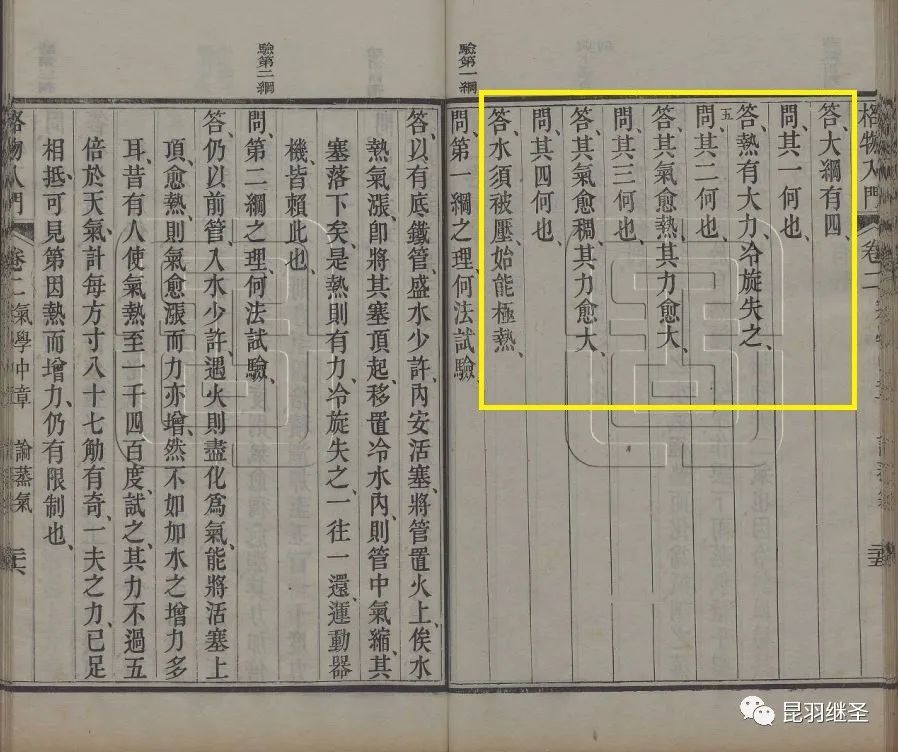 格物入門 卷二
答、大綱有四、
問、其一何也、
答、熱有大力、冷旋失之、
五
問、其二何也、
答、其氣愈熱、其力愈大、
問、其三何也、
答、其氣愈稠、其力愈大、
問、其四何也、
答、水須被壓、始能極熱、
驗第一綱
問、第一綱之理、何法試驗、
答、以有底鐵管、盛水少許、內安活塞、將管置火上、俟水
熱氣漲、卽將其塞頂起、移置冷水內、則管中氣縮、其
塞落下矣、是熱則有力、冷旋失之、一往一還、運動器
機、皆賴此也、
驗第二綱
問、第二綱之理、何法試驗、
答、仍以前管、入水少許、遇火則盡化爲氣、能將活塞上
頂、愈熱、則氣愈漲、而力亦增、然不如加水之增力多
耳、昔有人使氣熱至一千四百度試之、其力不過五
倍於天氣、計每方寸八十七觔有奇、一夫之力、已足
相抵、可見第因熱而增力、仍有限制也、
格物入門 卷二 氣學中章 論蒸氣 二六
昆羽继圣